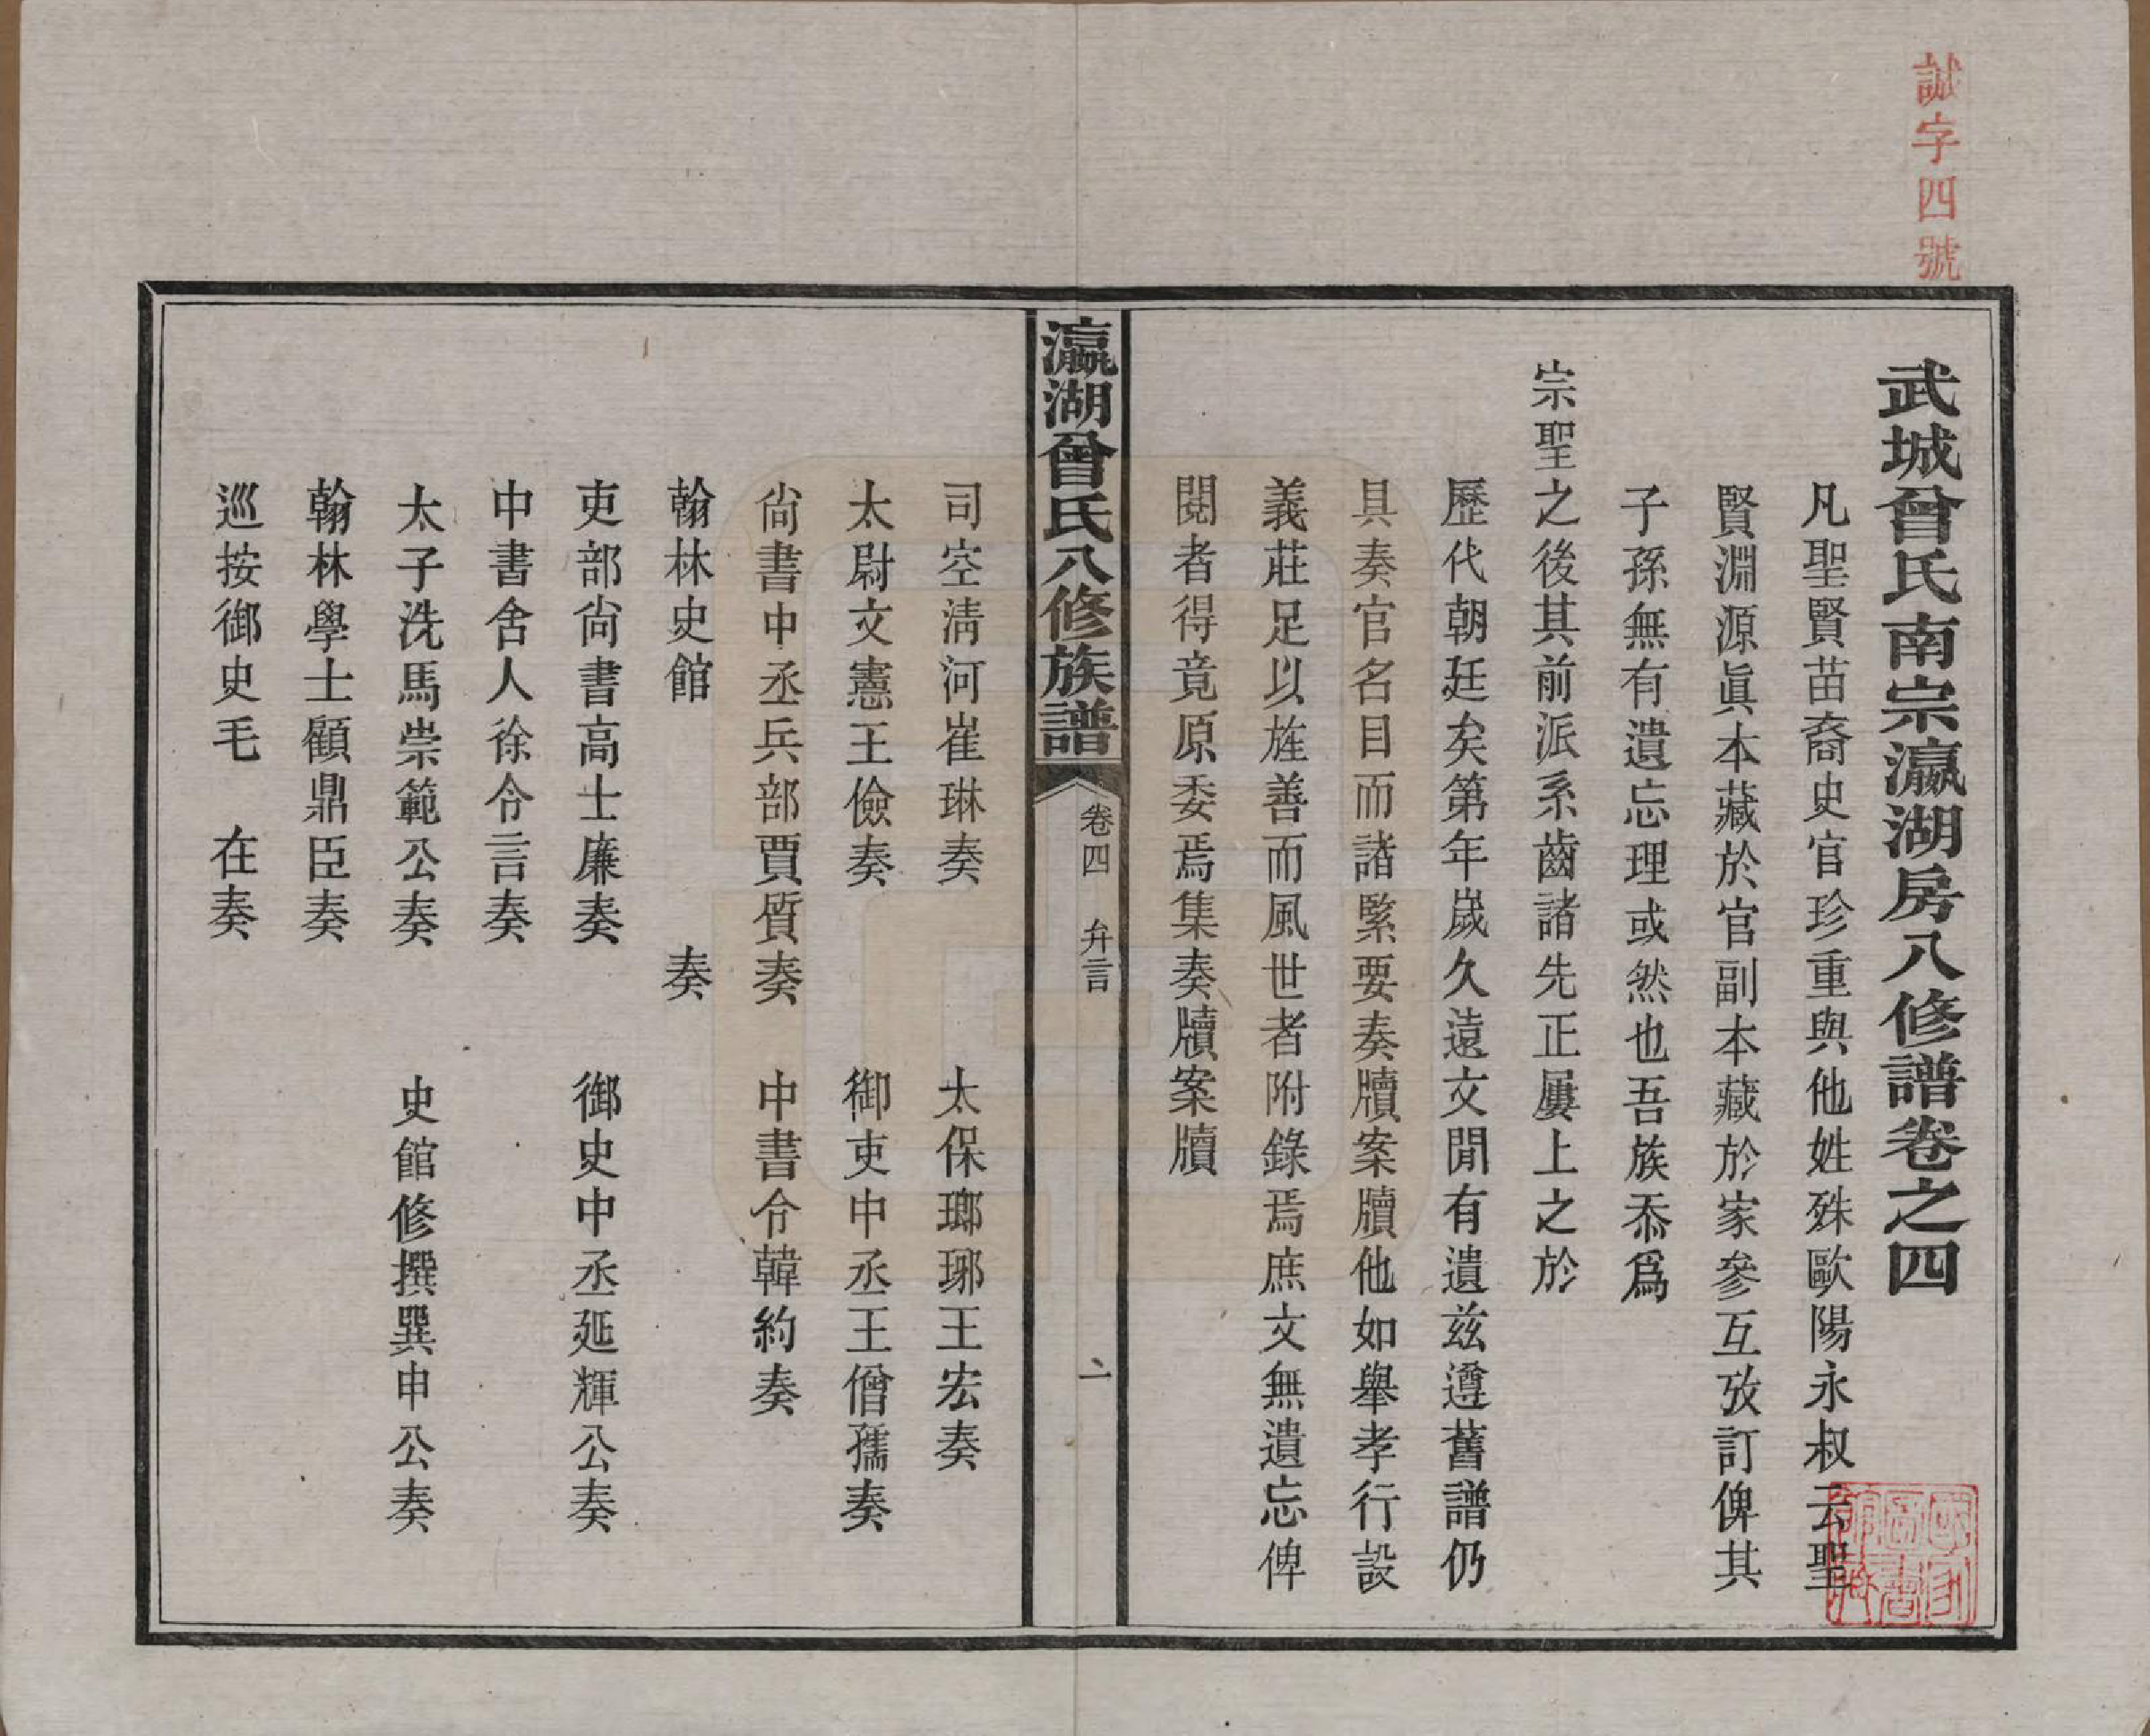 誠字四號
武城曾氏南宗瀛湖房八修譜卷之四
凡聖賢苗裔史官珍重與他姓殊歐陽永叔云聖
賢淵源眞本藏於官副本藏於家參互攷訂俾其
子孫無有遺忘理或然也吾族忝爲
宗聖之後其前派系齒諸先正屢上之於
歷代朝廷矣第年歲久遠文閒有遺兹遵舊譜仍
具奏官名目而諸緊要奏牘案牘他如舉孝行設
義莊足以旌善而風世者附錄焉庶文無遺忘俾
閱者得竟原委焉集奏牘案牘
瀛湖曾氏八修族譜
卷四 弁言
一
司空淸河崔琳奏 太保瑯琊王宏奏
太尉文憲王儉奏 御吏中丞王僧孺奏
尙書中丞兵部賈質奏 中書令韓約奏
翰林史館 奏
吏部尙書高士廉奏 御史中丞延輝公奏
中書舍人徐令言奏
太子洗馬崇範公奏 史館修撰巽申公奏
翰林學士顧鼎臣奏
巡按御史毛 在奏
國家圖書館藏